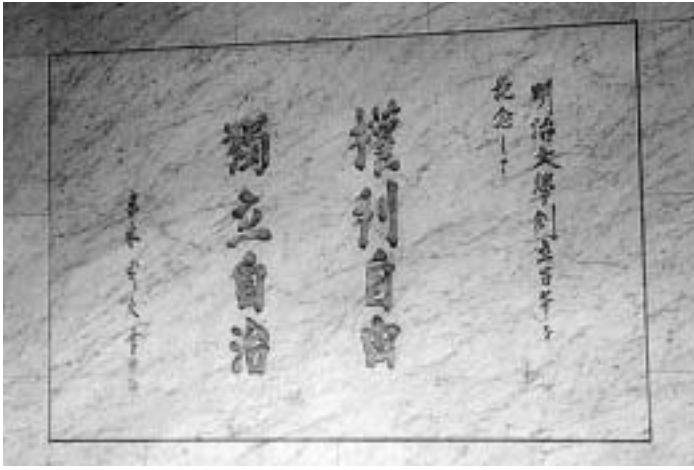 明治大學創立百年を
記念して
權利自由
獨立自治